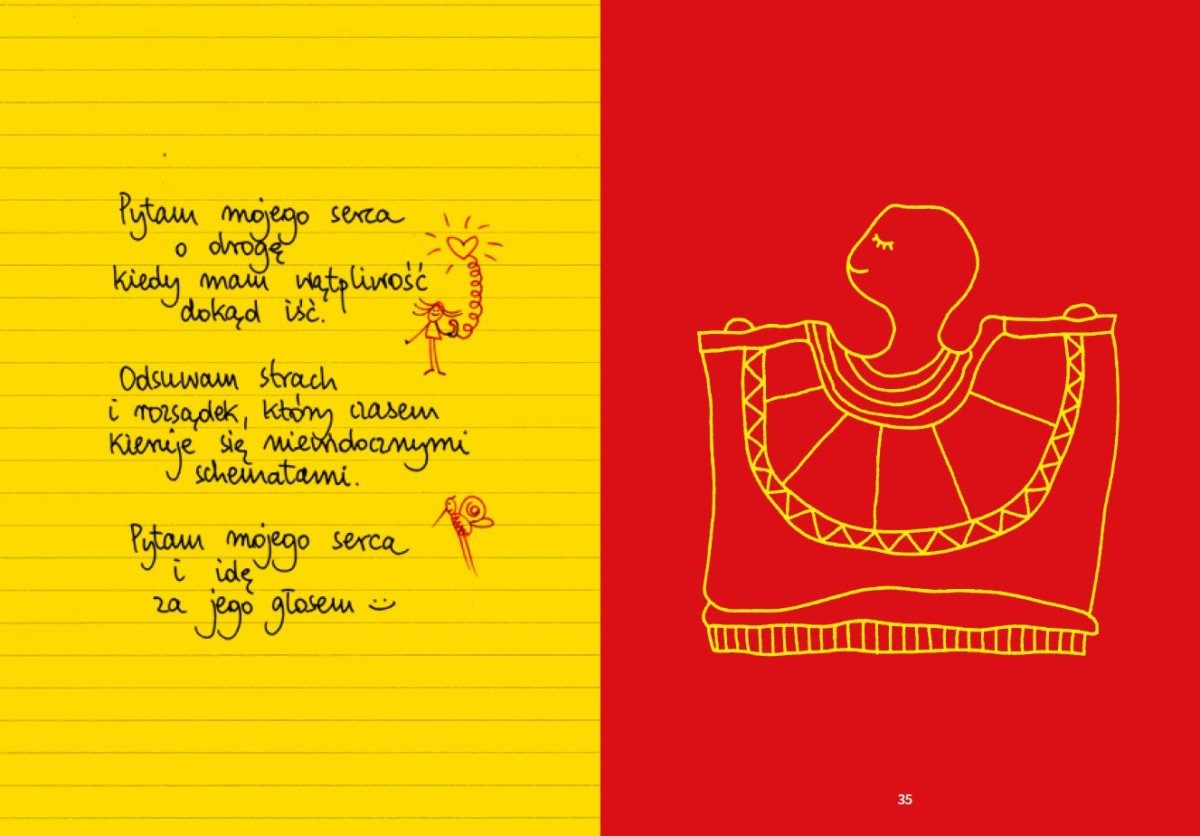 Pytam mojego serca
o drogę
kiedy mam wątpliwość
dokąd iść.
Odsuwam strach
i rozsądek, który czasem
kieruje się niewidocznymi
schematami.
Pytam mojego serca
i idę
za jego głosem :)
35